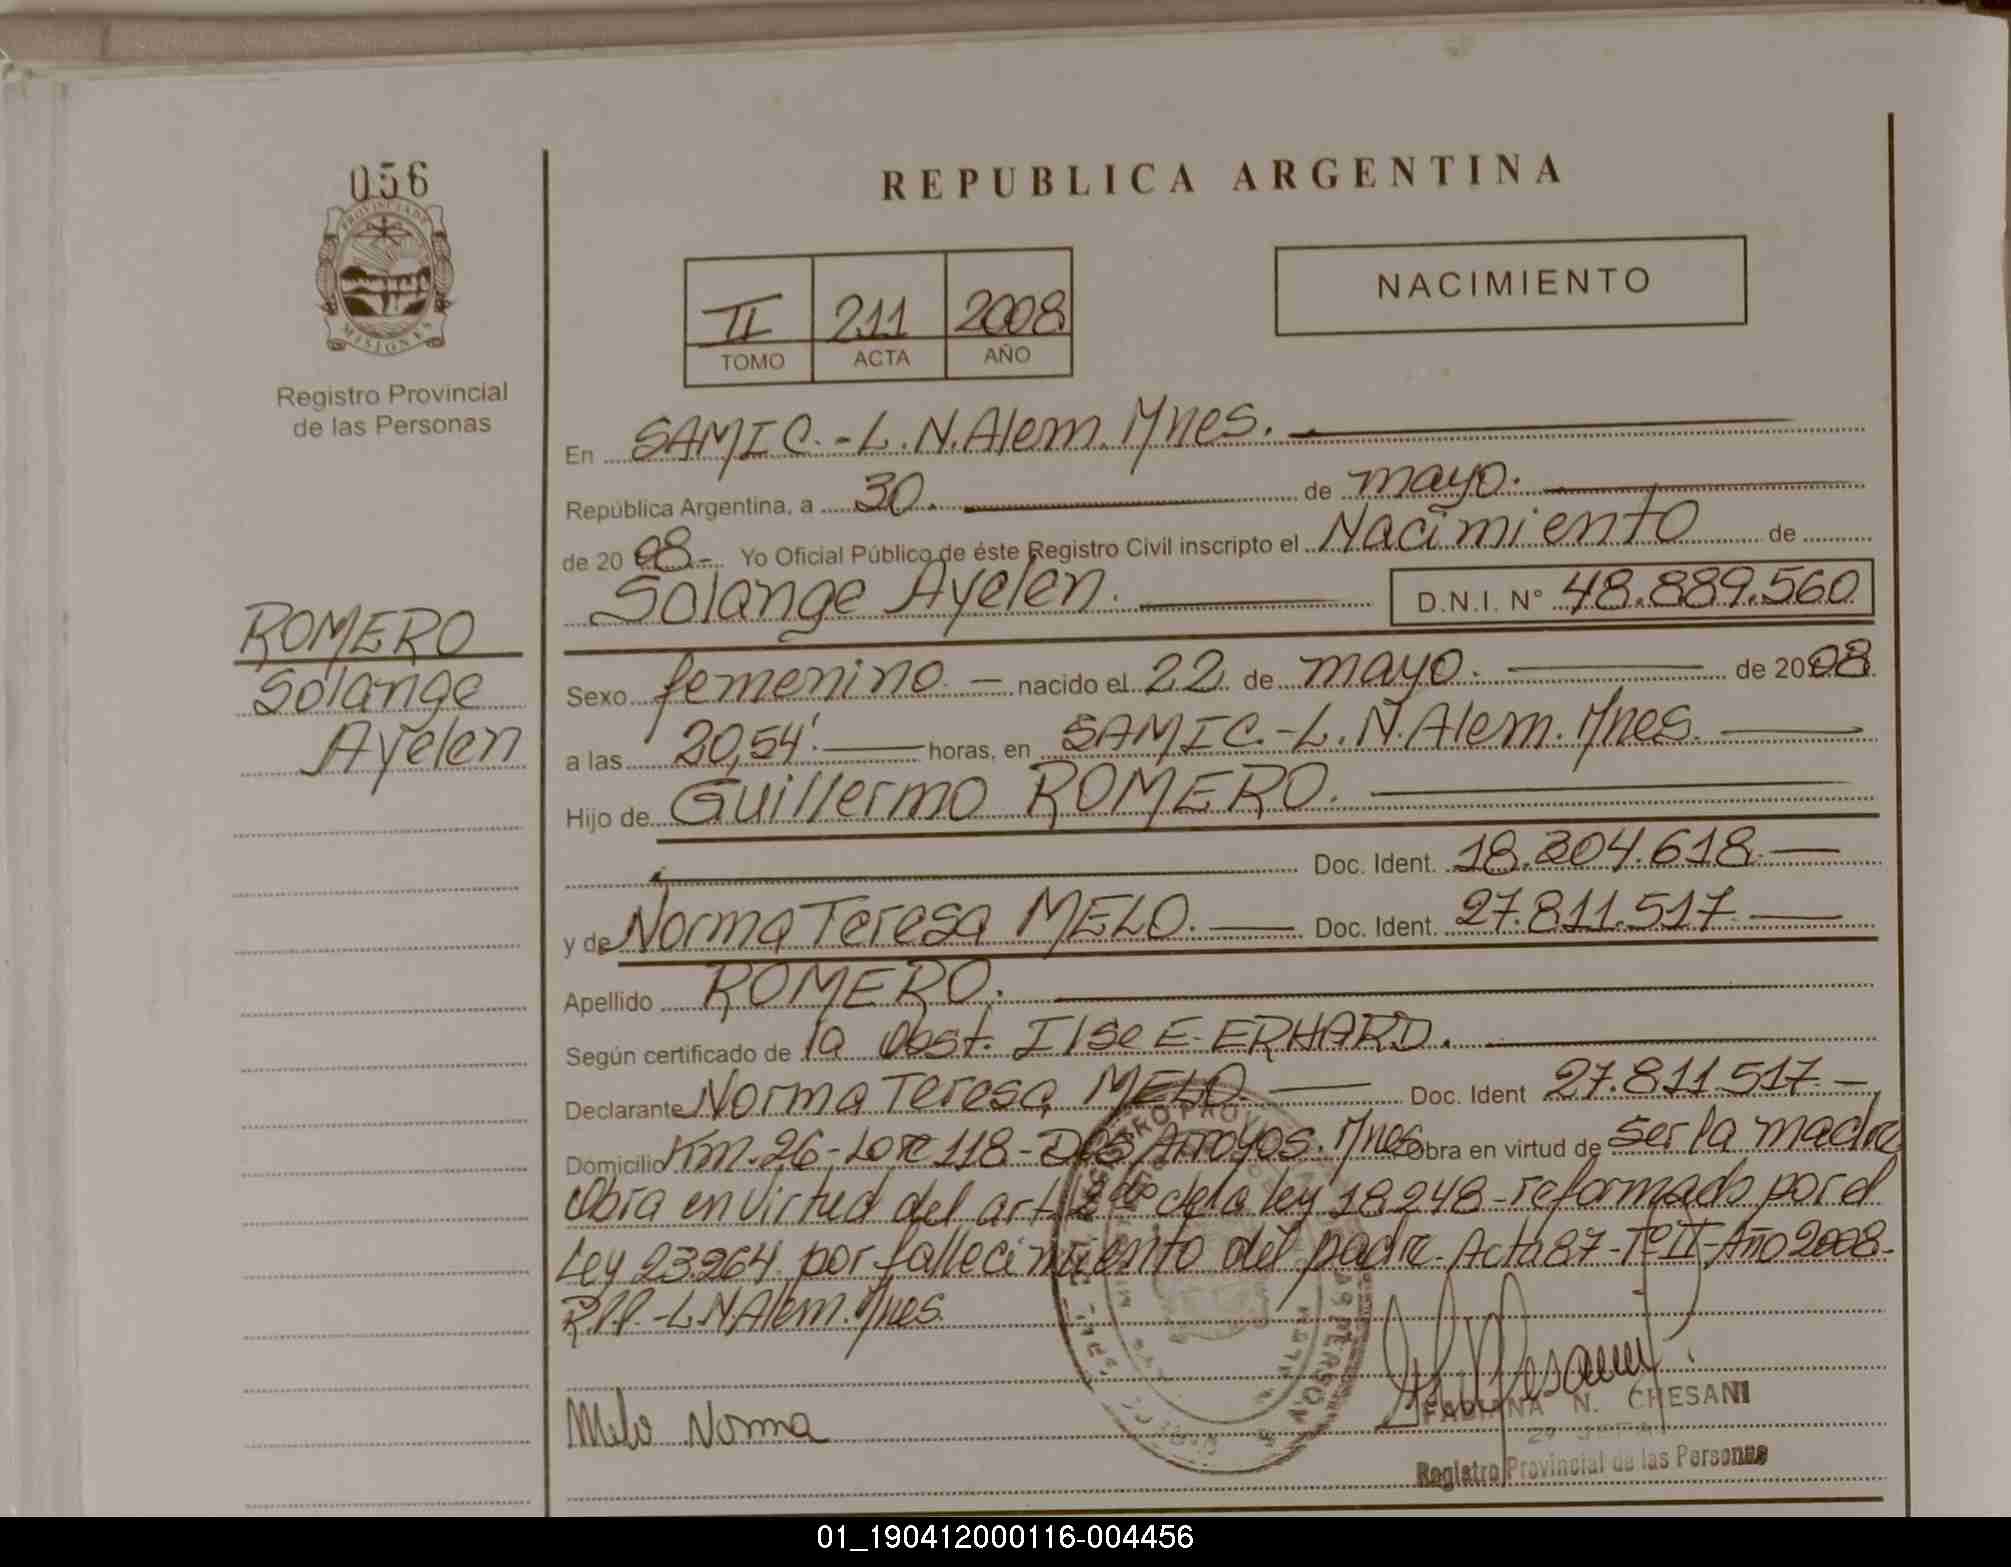 056
PROVINCIA DE
MISIONES
Registro Provincial
de las Personas
ROMERO
Solange
Ayelen
REPUBLICA ARGENTINA
II 211 2008
TOMO ACTA AÑO
NACIMIENTO
En SAMIC.-L.N.Alem.Mnes.
República Argentina, a 30. de mayo.
de 20 08- Yo Oficial Público de éste Registro Civil inscripto el Nacimiento de
Solange Ayelen. D.N.I. N° 48.889.560
Sexo femenino - nacido el 22 de mayo. de 2008
a las 20,54'. horas, en SAMIC.-L.N.Alem.Mnes.
Hijo de Guillermo ROMERO.
Doc. Ident. 18.304.618.-
y de Norma Teresa MELO. Doc. Ident. 27.811.517.-
Apellido ROMERO.
Según certificado de la Obst. Ilse E. ERHARD.
Declarante Norma Teresa MELO Doc. Ident 27.811.517.-
Domicilio Km.26-Lote 118-Dos Arroyos.Mnes Obra en virtud de ser la madre
Obra en virtud del art. 2do de la ley 18248-reformado por el
Ley 23264 por fallecimiento del padre. Acta 87-Tº II-Año 2008-
R.P.P.-L.N.Alem.Mnes.
Melo Norma
FABIANA N. CHESANI
Registro Provincial de las Personas
01_190412000116-004456